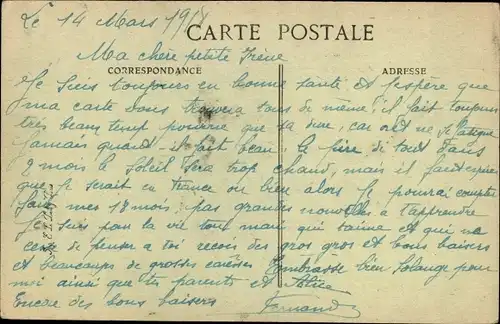 Le 14 Mars 1918
CARTE POSTALE
Ma chère petite Irène
CORRESPONDANCE
ADRESSE
Je suis toujours en bonne santé et j'espère que
ma carte vous trouvera tous de même. il fait toujours
très beau temps pourvu que sa dure, car on ne se fatigue
jamais quand il fait beau. le pire de tout dans
2 mois le soleil sera trop chaud, mais il faut espérer
que je serait en France ou bien alors je pourai compter
faire mes 18 mois. pas grandes nouvelles a t'apprendre
Je suis pour la vie ton mari qui t'aime et qui ne
cesse de penser a toi recois des gros gros et bons baisers
et beaucoups de grosses caresses Embrasse bien Solange pour
moi ainsi que tes parents et Alice
Encore des bons baisers Fernand